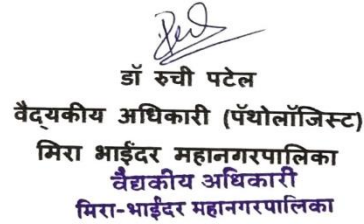 डॉ रुची पटेल
वैद्यकीय अधिकारी (पॅथोलॉजिस्ट)
मिरा भाईंदर महानगरपालिका
वैद्यकीय अधिकारी
मिरा-भाईंदर महानगरपालिका